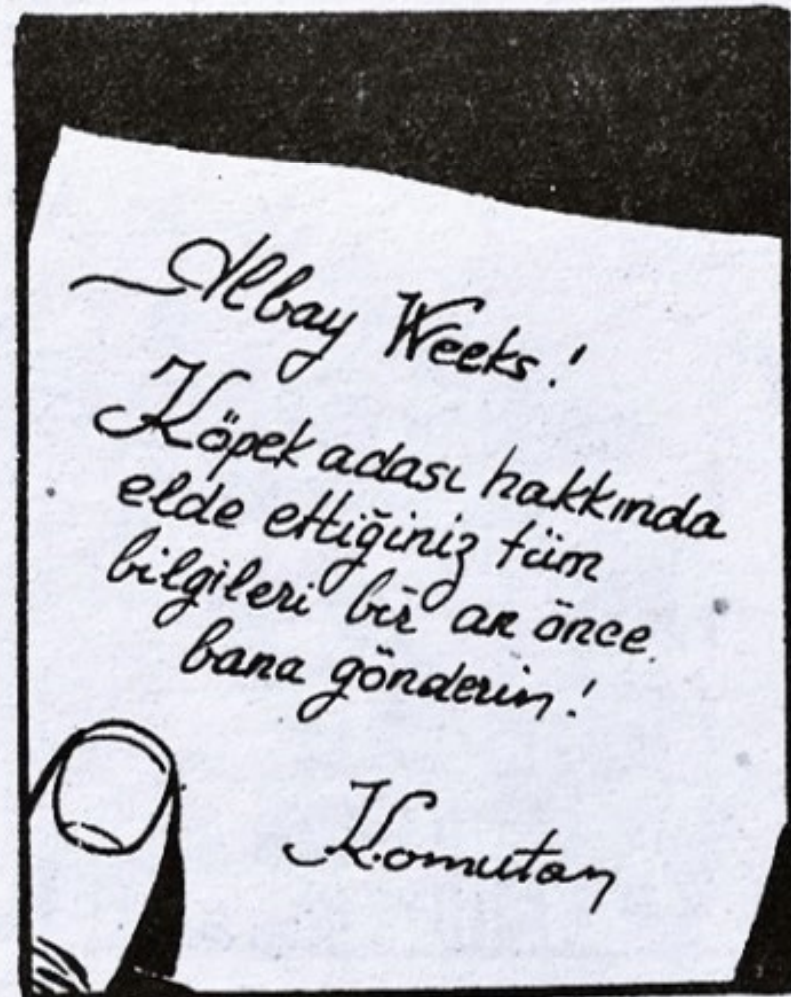 Albay Weeks!
Köpek adası hakkında
elde ettiğiniz tüm
bilgileri bir an önce
bana gönderin!
Komutan